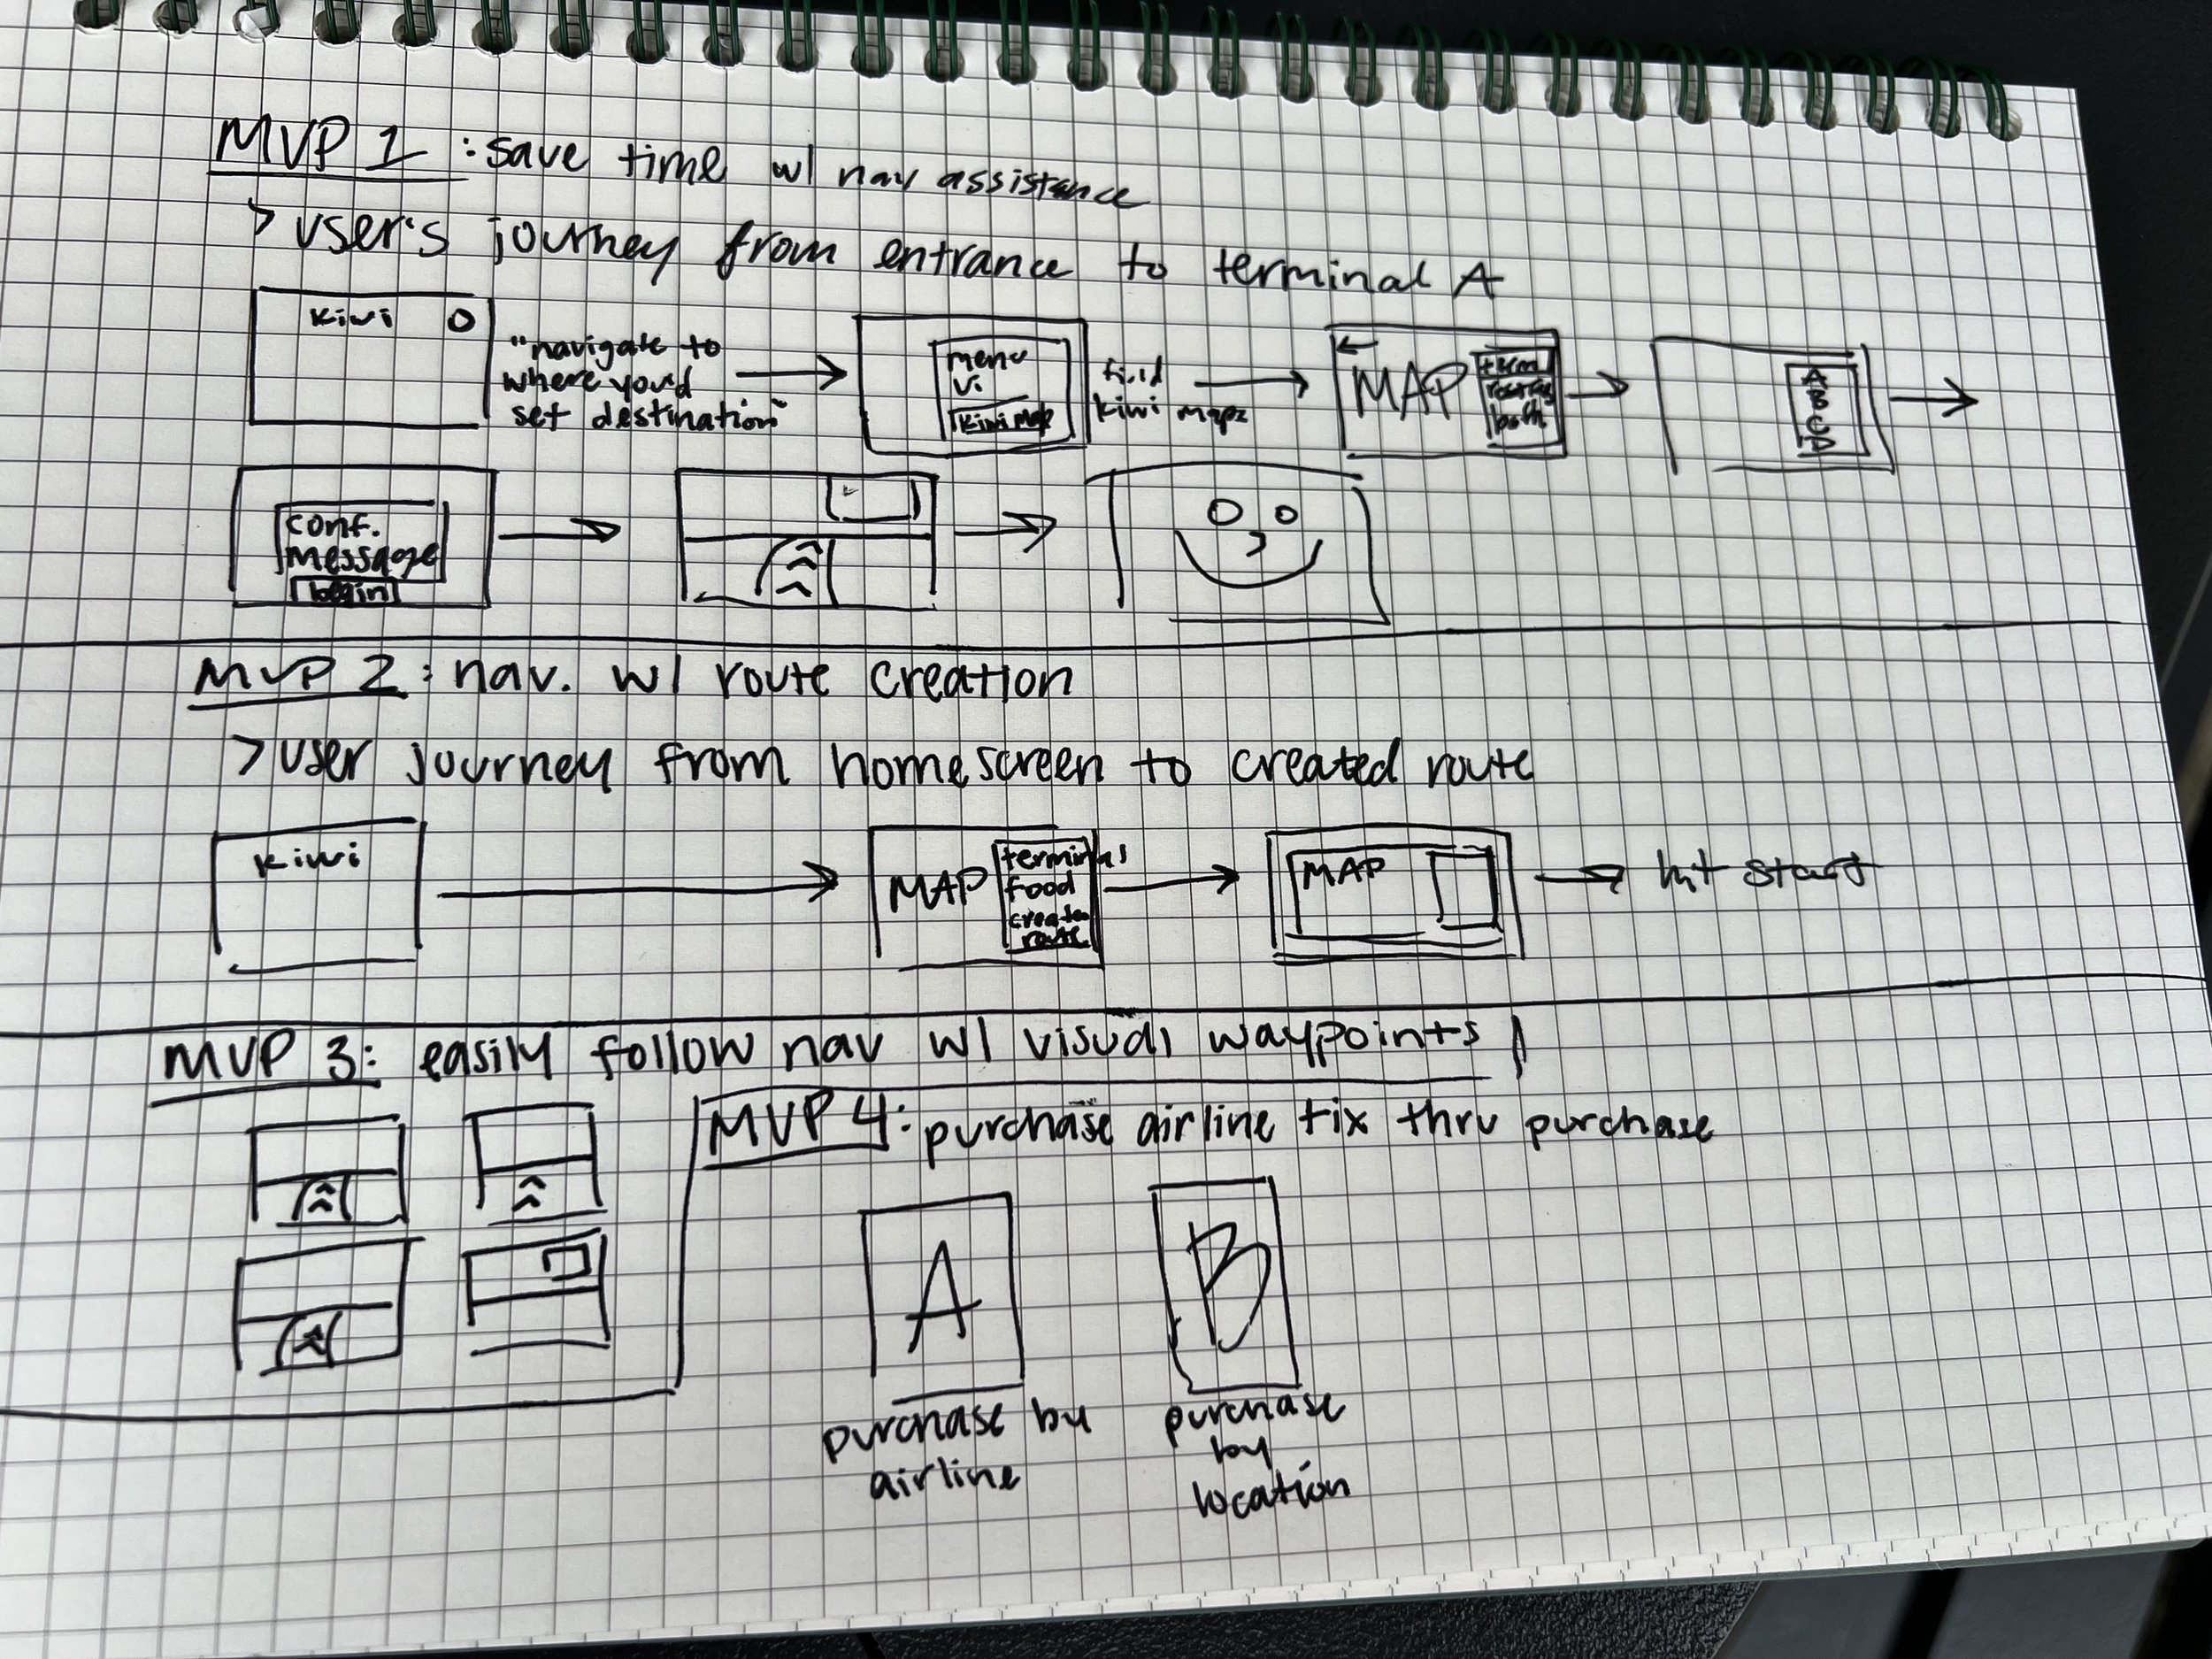 MVP 1 : save time w/ nav assistance
> user's journey from entrance to terminal A
kiwi
"navigate to
where you'd
set destination"
menu
Ui
Kiwi Map
find
kiwi mapz
MAP
term
bath
A
B
C
D
conf.
message
begin
MVP 2 : nav. w/ route creation
> user journey from homescreen to created route
kiwi
MAP
terminals
food
create
route
MAP
hit start
MVP 3: easily follow nav w/ visual waypoints
MVP 4: purchase airline tix thru purchase
A
B
purchase by
airline
purchase
by
location